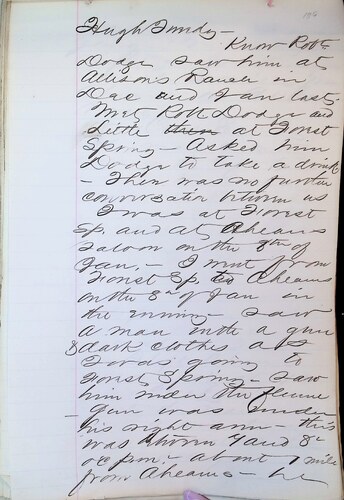 Hugh Tundy -
Know Robt
Dodge saw him at
Allison's Ranch in
Dec and Jan last -
Met Robt Dodge and
Little then at Forest
Spring - Asked him
Dodge to take a drink
- There was no further
conversation between us
I was at Forest
Sp. and at Aheams
Saloon on the 8th of
Jan. - I went from
Forest Sp. to Aheams
on the 8th of Jan in
the evening - saw
a man with a gun
& dark clothes a
going to
Forest Spring - saw
him under the flume
Gun was under
his right arm - this
was between 7 and 8
P.m. - about 1 mile
from Aheams - he